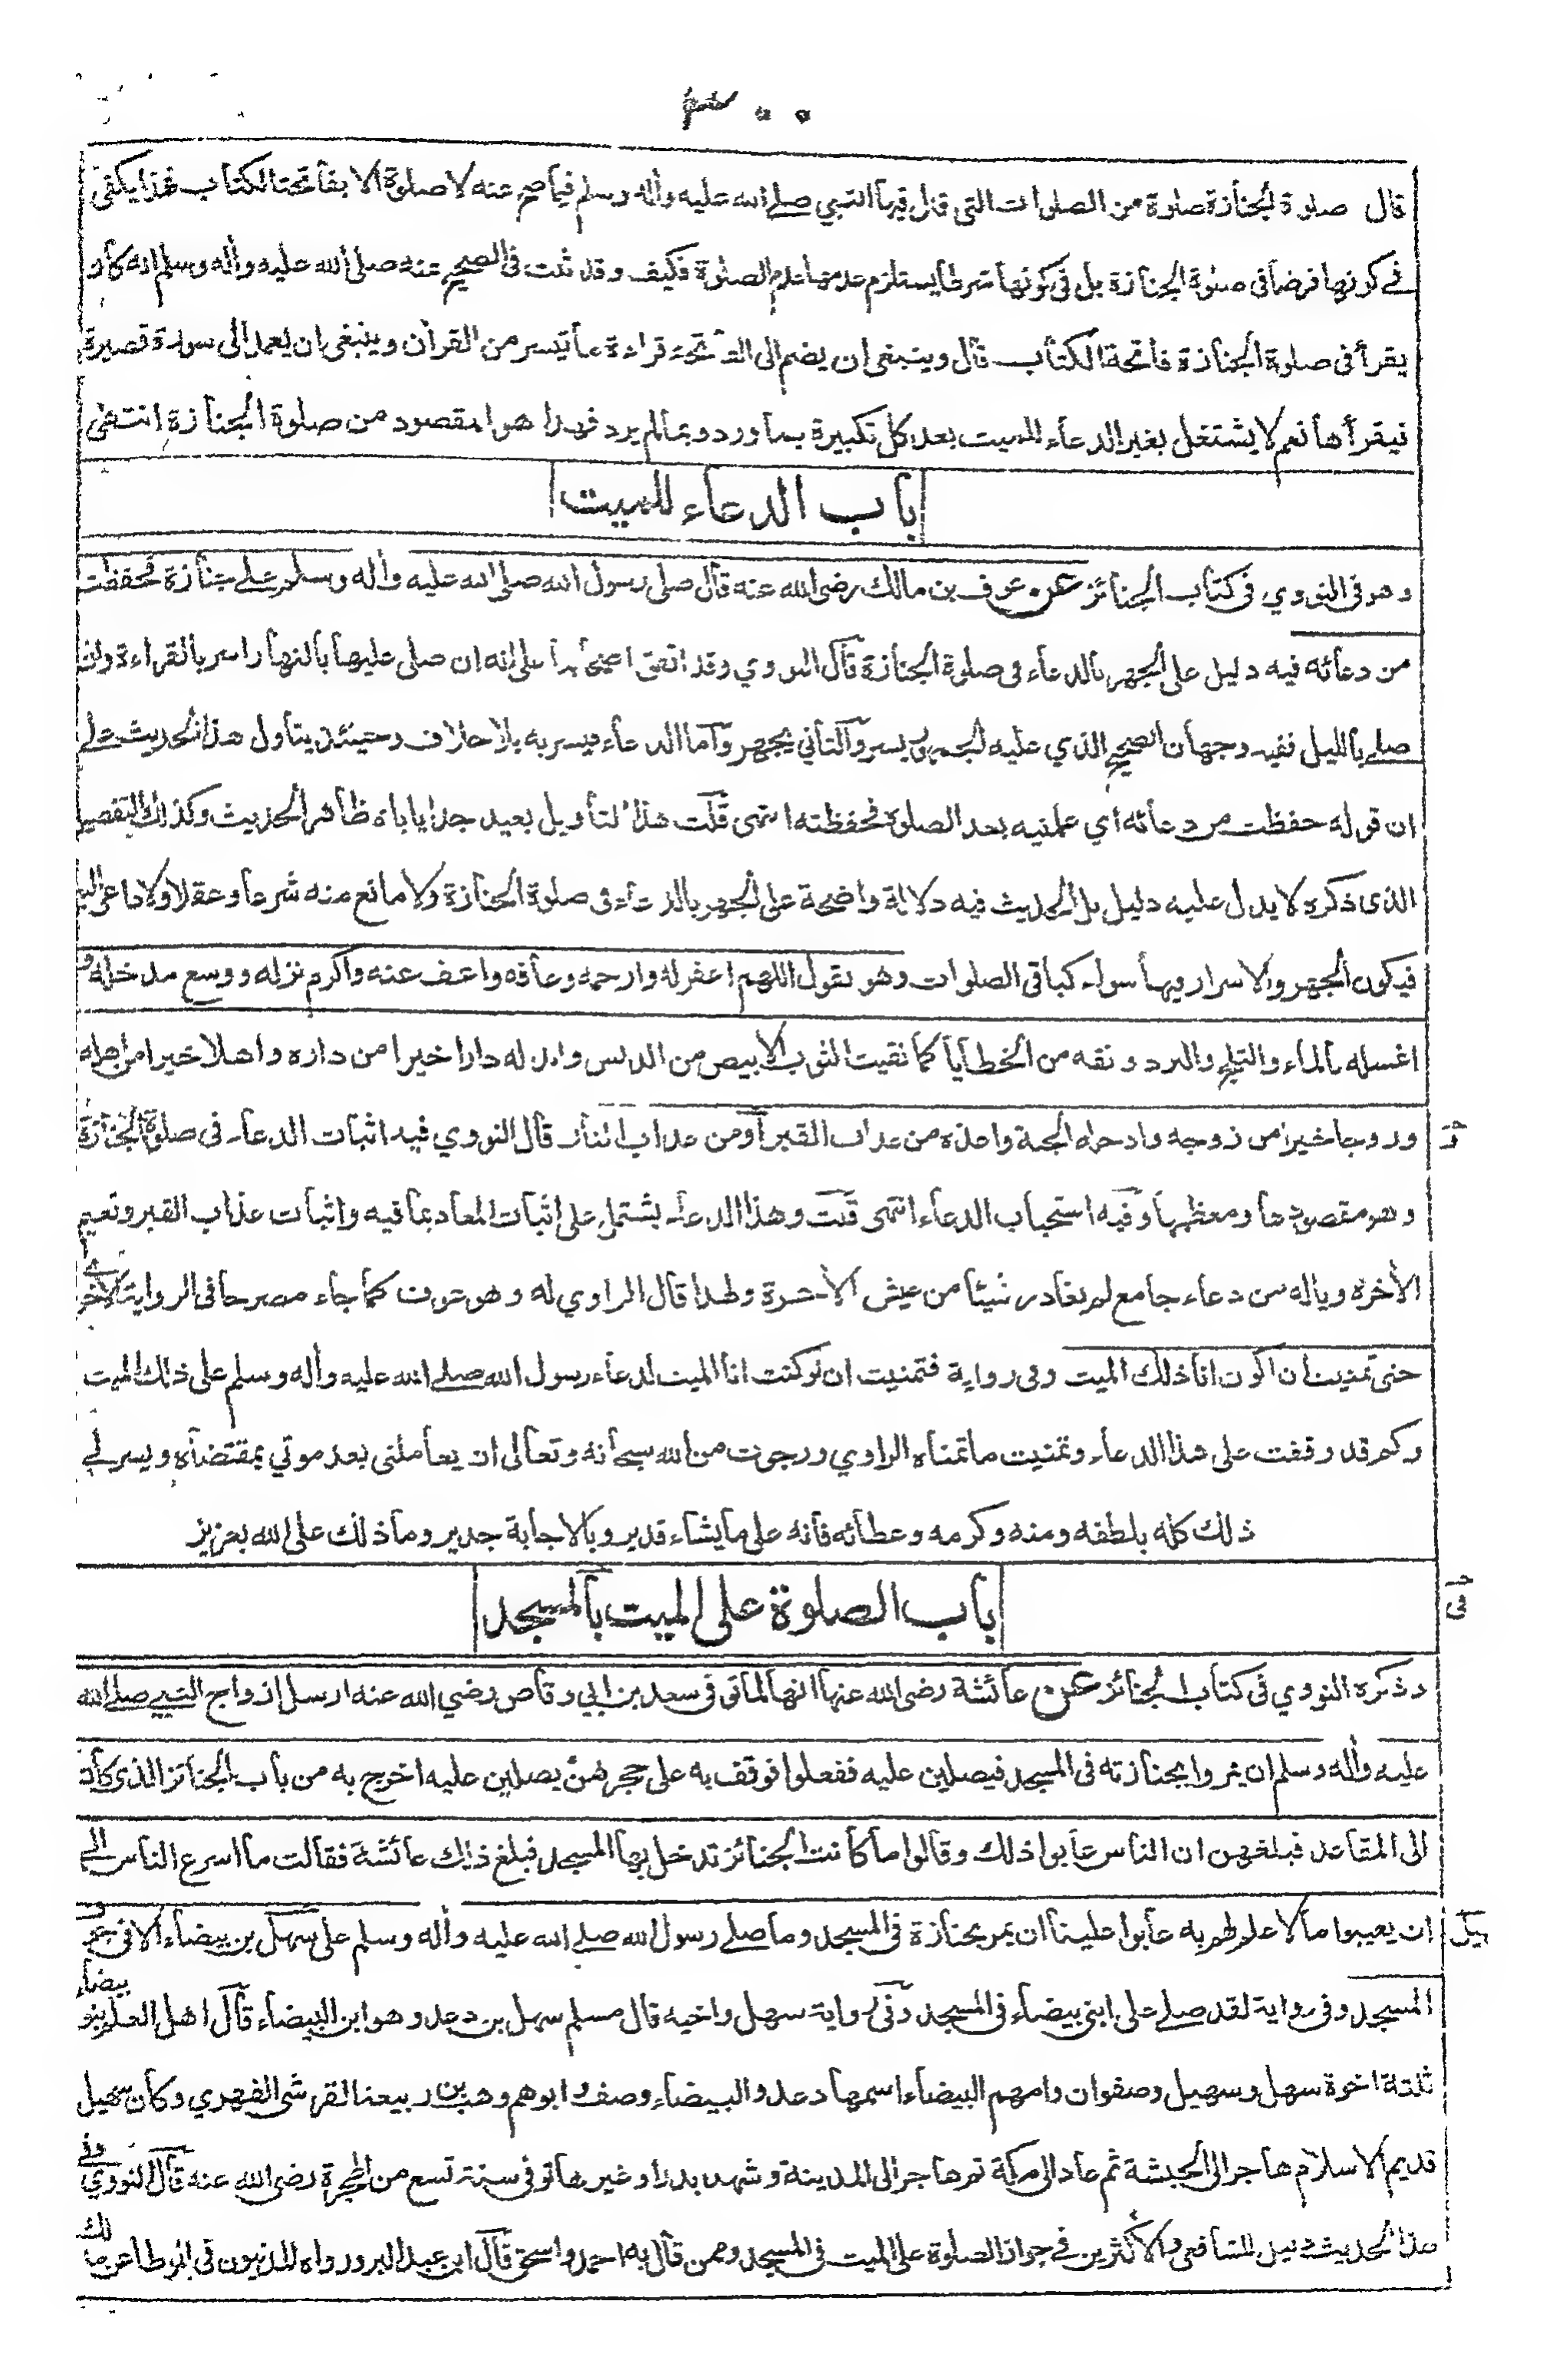 ٣٠٠
قال صلوة الجنازة صلوة من الصلوات التي قال فيها النبي صلے الله عليه وأله وسلم فيما صح عنه لا صلوة الا بفاتحة الكتاب فهذا يكفي
فے كونها فرضا في صلوة الجنازة بل في كونها شرطا يستلزم عدمها عدم الصلوة فكيف وقد ثبت في الصحيح عنه صلى الله عليه وأله وسلم انه كان
يقرأ في صلوة الجنازة فاتحة الكتاب قال وينبغي ان يضم الى الفاتحة قراءة ما تيسر من القرأن وينبغي ان يعمد الى سورة قصيرة
فيقرأها نعم لا يشتغل بغير الدعاء للميت بعد كل تكبيرة بما ورد وبما لم يرد فهذا هو المقصود من صلوة الجنازة انتهى
باب الدعاء للميت
وهو في النووي في كتاب الجنائز عن عوف بن مالك رضي الله عنه قال صلى رسول الله صلى الله عليه وأله وسلم على جنازة فحفظت
من دعائه فيه دليل على الجهر بالدعاء في صلوة الجنازة قال النووي وقد اتفق اصحابنا على انه ان صلى عليها بالنهار اسر بالقراءة وان
صلے بالليل ففيه وجهان الصحيح الذي عليه الجمهور يسر والثاني يجهر واما الدعاء فيسر به بلا خلاف وحينئذ يتأول هذا الحديث علے
ان قوله حفظت من دعائه اي علمنيه بعد الصلوة فحفظته انتهى قلت هذا التأويل بعيد جدا ياباه ظاهر الحديث وكذلك التفصيل
الذي ذكره لا يدل عليه دليل بل الحديث فيه دلالة واضحة على الجهر بالدعاء في صلوة الجنازة ولا مانع منه شرعا وعقلا ولا داعي اليه
فيكون الجهر والاسرار فيها سواء كباقي الصلوات وهو يقول اللهم اغفر له وارحمه وعافه واعف عنه واكرم نزله ووسع مدخله و
اغسله بالماء والثلج والبرد ونقه من الخطايا كما نقيت الثوب الابيض من الدنس وابدله دارا خيرا من داره واهلا خيرا من اهله
وزوجا خيرا من زوجه وادخله الجنة واعذه من عذاب القبر او من عذاب النار قال النووي فيه اثبات الدعاء في صلوة الجنازة
وهو مقصودها ومعظمها وفيه استحباب الدعاء انتهى قلت وهذا الدعاء يشتمل على اثبات المعاد بما فيه واثبات عذاب القبر ونعيم
الأخرة وياله من دعاء جامع لم يغادر شيئا من عيش الأخرة ولهذا قال الراوي له وهو عوف كما جاء مصرحا في الرواية الاخرے
حتى تمنيت ان اكون انا ذلك الميت وفي رواية فتمنيت ان لو كنت انا الميت لدعاء رسول الله صلے الله عليه وأله وسلم على ذلك الميت
وكم قد وقفت على هذا الدعاء وتمنيت ما تمناه الراوي ورجوت من الله سبحانه وتعالى ان يعاملني بعد موتي بمقتضاه ويسر لي
ذلك كله بلطفه ومنه وكرمه وعطائه فانه على ما يشاء قدير وبالاجابة جدير وما ذلك على الله بعزيز
باب الصلوة على الميت بالمسجد
في
وذكره النووي في كتاب الجنائز عن عائشة رضي الله عنها انها لما توفي سعد بن ابي وقاص رضي الله عنه ارسل ازواج النبي صلے الله
عليه وأله وسلم ان يمروا بجنازته في المسجد فيصلين عليه ففعلوا فوقف به على حجرهن يصلين عليه اخرج به من باب الجنائز الذي كان
الى المقاعد فبلغهن ان الناس عابوا ذلك وقالوا ما كانت الجنائز تدخل بها المسجد فبلغ ذلك عائشة فقالت ما اسرع الناس الے
ان يعيبوا ما لا علم لهم به عابوا علينا ان يمر بجنازة في المسجد وما صلے رسول الله صلے الله عليه وأله وسلم على سهيل بن بيضاء الا في جوف
المسجد وفي رواية لقد صلے على ابني بيضاء في المسجد وفي رواية سهيل واخيه قال مسلم سهل بن دعد وهو ابن البيضاء قال اهل العلم بنو بيضاء
ثلثة اخوة سهل وسهيل وصفوان وامهم البيضاء اسمها دعد والبيضاء وصف وابوهم وهب بن ربيعة القرشي الفهري وكان سهيل
قديم الاسلام هاجر الى الحبشة ثم عاد الى مكة ثم هاجر الى المدينة وشهد بدرا وغيرها توفي سنة تسع من الهجرة رضي الله عنه قال النووي وفے
هذا الحديث دليل للشافعي والاكثرين فے جواز الصلوة على الميت في المسجد وممن قال به احمد واسحق قال ابن عبد البر ورواه المدنيون في الموطا عن مالك